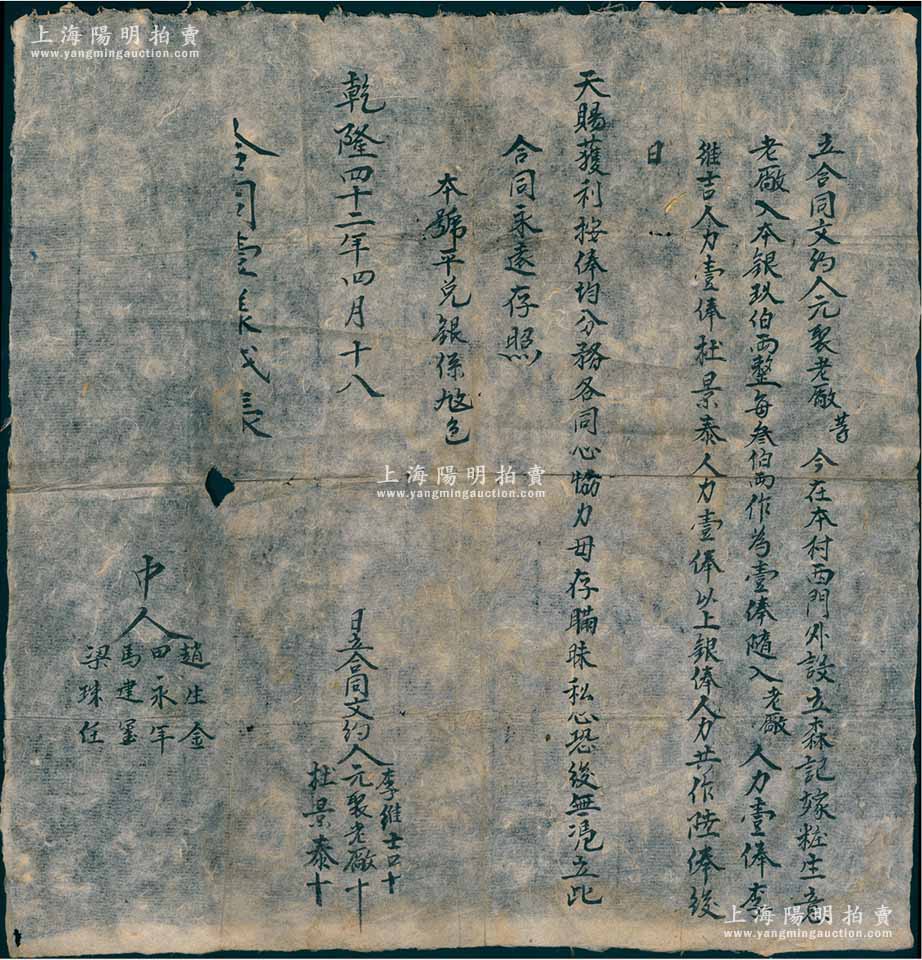 立合同文約人元聚老廠等今在本村西門外設立森記嫁粧生意
老廠入本銀玖伯両整每叁伯両作為壹俸隨入老廠人力壹俸李
維吉人力壹俸杜景泰人力壹俸以上銀俸人力共作陸俸後
日
天賜獲利按俸均分務各同心協力毋存瞞昧私心恐後無憑立此
合同永遠存照
本號平兌銀係色
乾隆四十二年四月十八
日立合同文約人
李維吉十
元聚老廠十
杜景泰十
合同壹
中人
趙生金
田永年
馬建
梁珠任
上海陽明拍賣
www.yangmingauction.com
上海陽明拍賣
www.yangmingauction.com
上海陽明拍賣
www.yangmingauction.com
上海陽明拍賣
www.yangmingauction.com